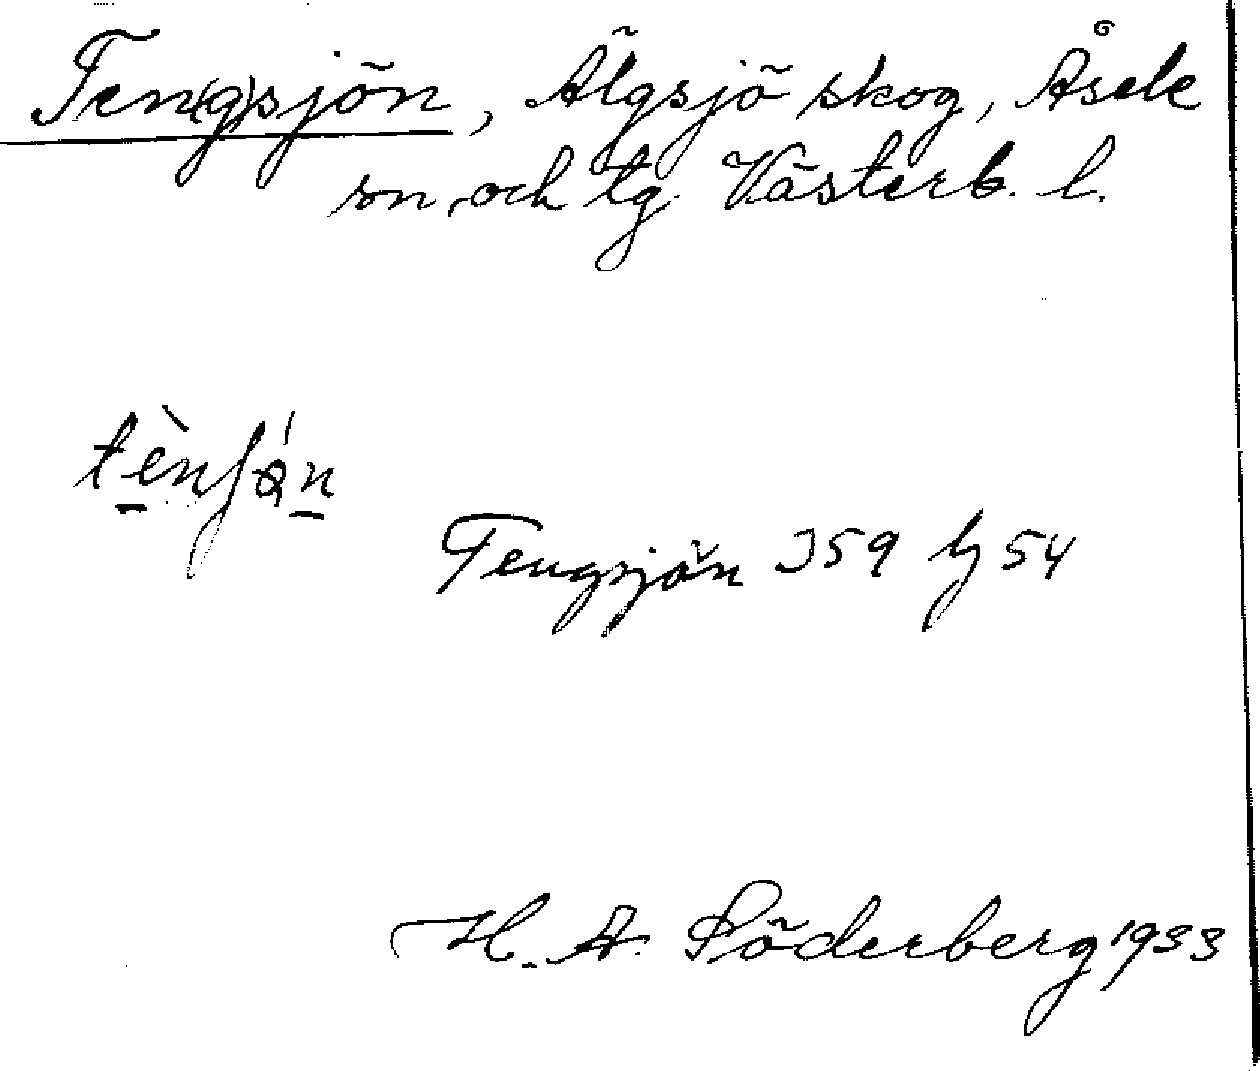 Ten(g)sjön, Älgsjö skog, Åsele
sn. och tg. Västerb. l.
tènʃǿn
Tengsjön J59 bj 54
H. A. Söderberg 1933